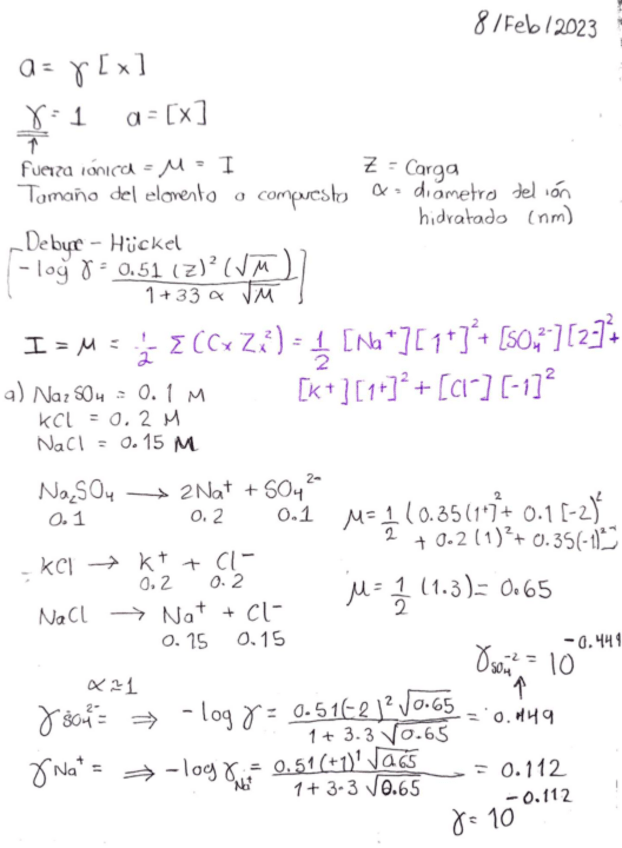 8/Feb/2023
a = γ [x]
γ = 1   a = [x]
↑
Fuerza iónica = μ = I   Z = Carga
Tamaño del elemento o compuesto   α = diametro del ión
hidratado (nm)
Debye - Hückel
-log γ = 0.51 (z)² (√μ) / 1 + 33 α √μ
I = μ = 1/2 Σ (Cx Zx²) = 1/2 [Na⁺][1⁺]² + [SO₄²⁻][2⁻]² +
[k⁺][1⁺]² + [Cl⁻][-1]²
a) Na₂SO₄ = 0.1 M
kCl = 0.2 M
NaCl = 0.15 M
Na₂SO₄ → 2Na⁺ + SO₄²⁻
0.1   0.2   0.1
μ = 1/2 (0.35(1⁺)² + 0.1[-2)²
+ 0.2(1)² + 0.35(-1)²
kCl → k⁺ + Cl⁻
0.2   0.2
μ = 1/2 (1.3) = 0.65
NaCl → Na⁺ + Cl⁻
0.15   0.15
γ SO₄⁻² = 10^-0.449
↑
α ≃ 1
γ SO₄²⁻ = ⇒ -log γ = 0.51(-2)² √0.65 / 1 + 3.3 √0.65 = 0.449
γ Na⁺ = ⇒ -log γ Na⁺ = 0.51(+1)¹ √0.65 / 1 + 3.3 √0.65 = 0.112
γ = 10^-0.112